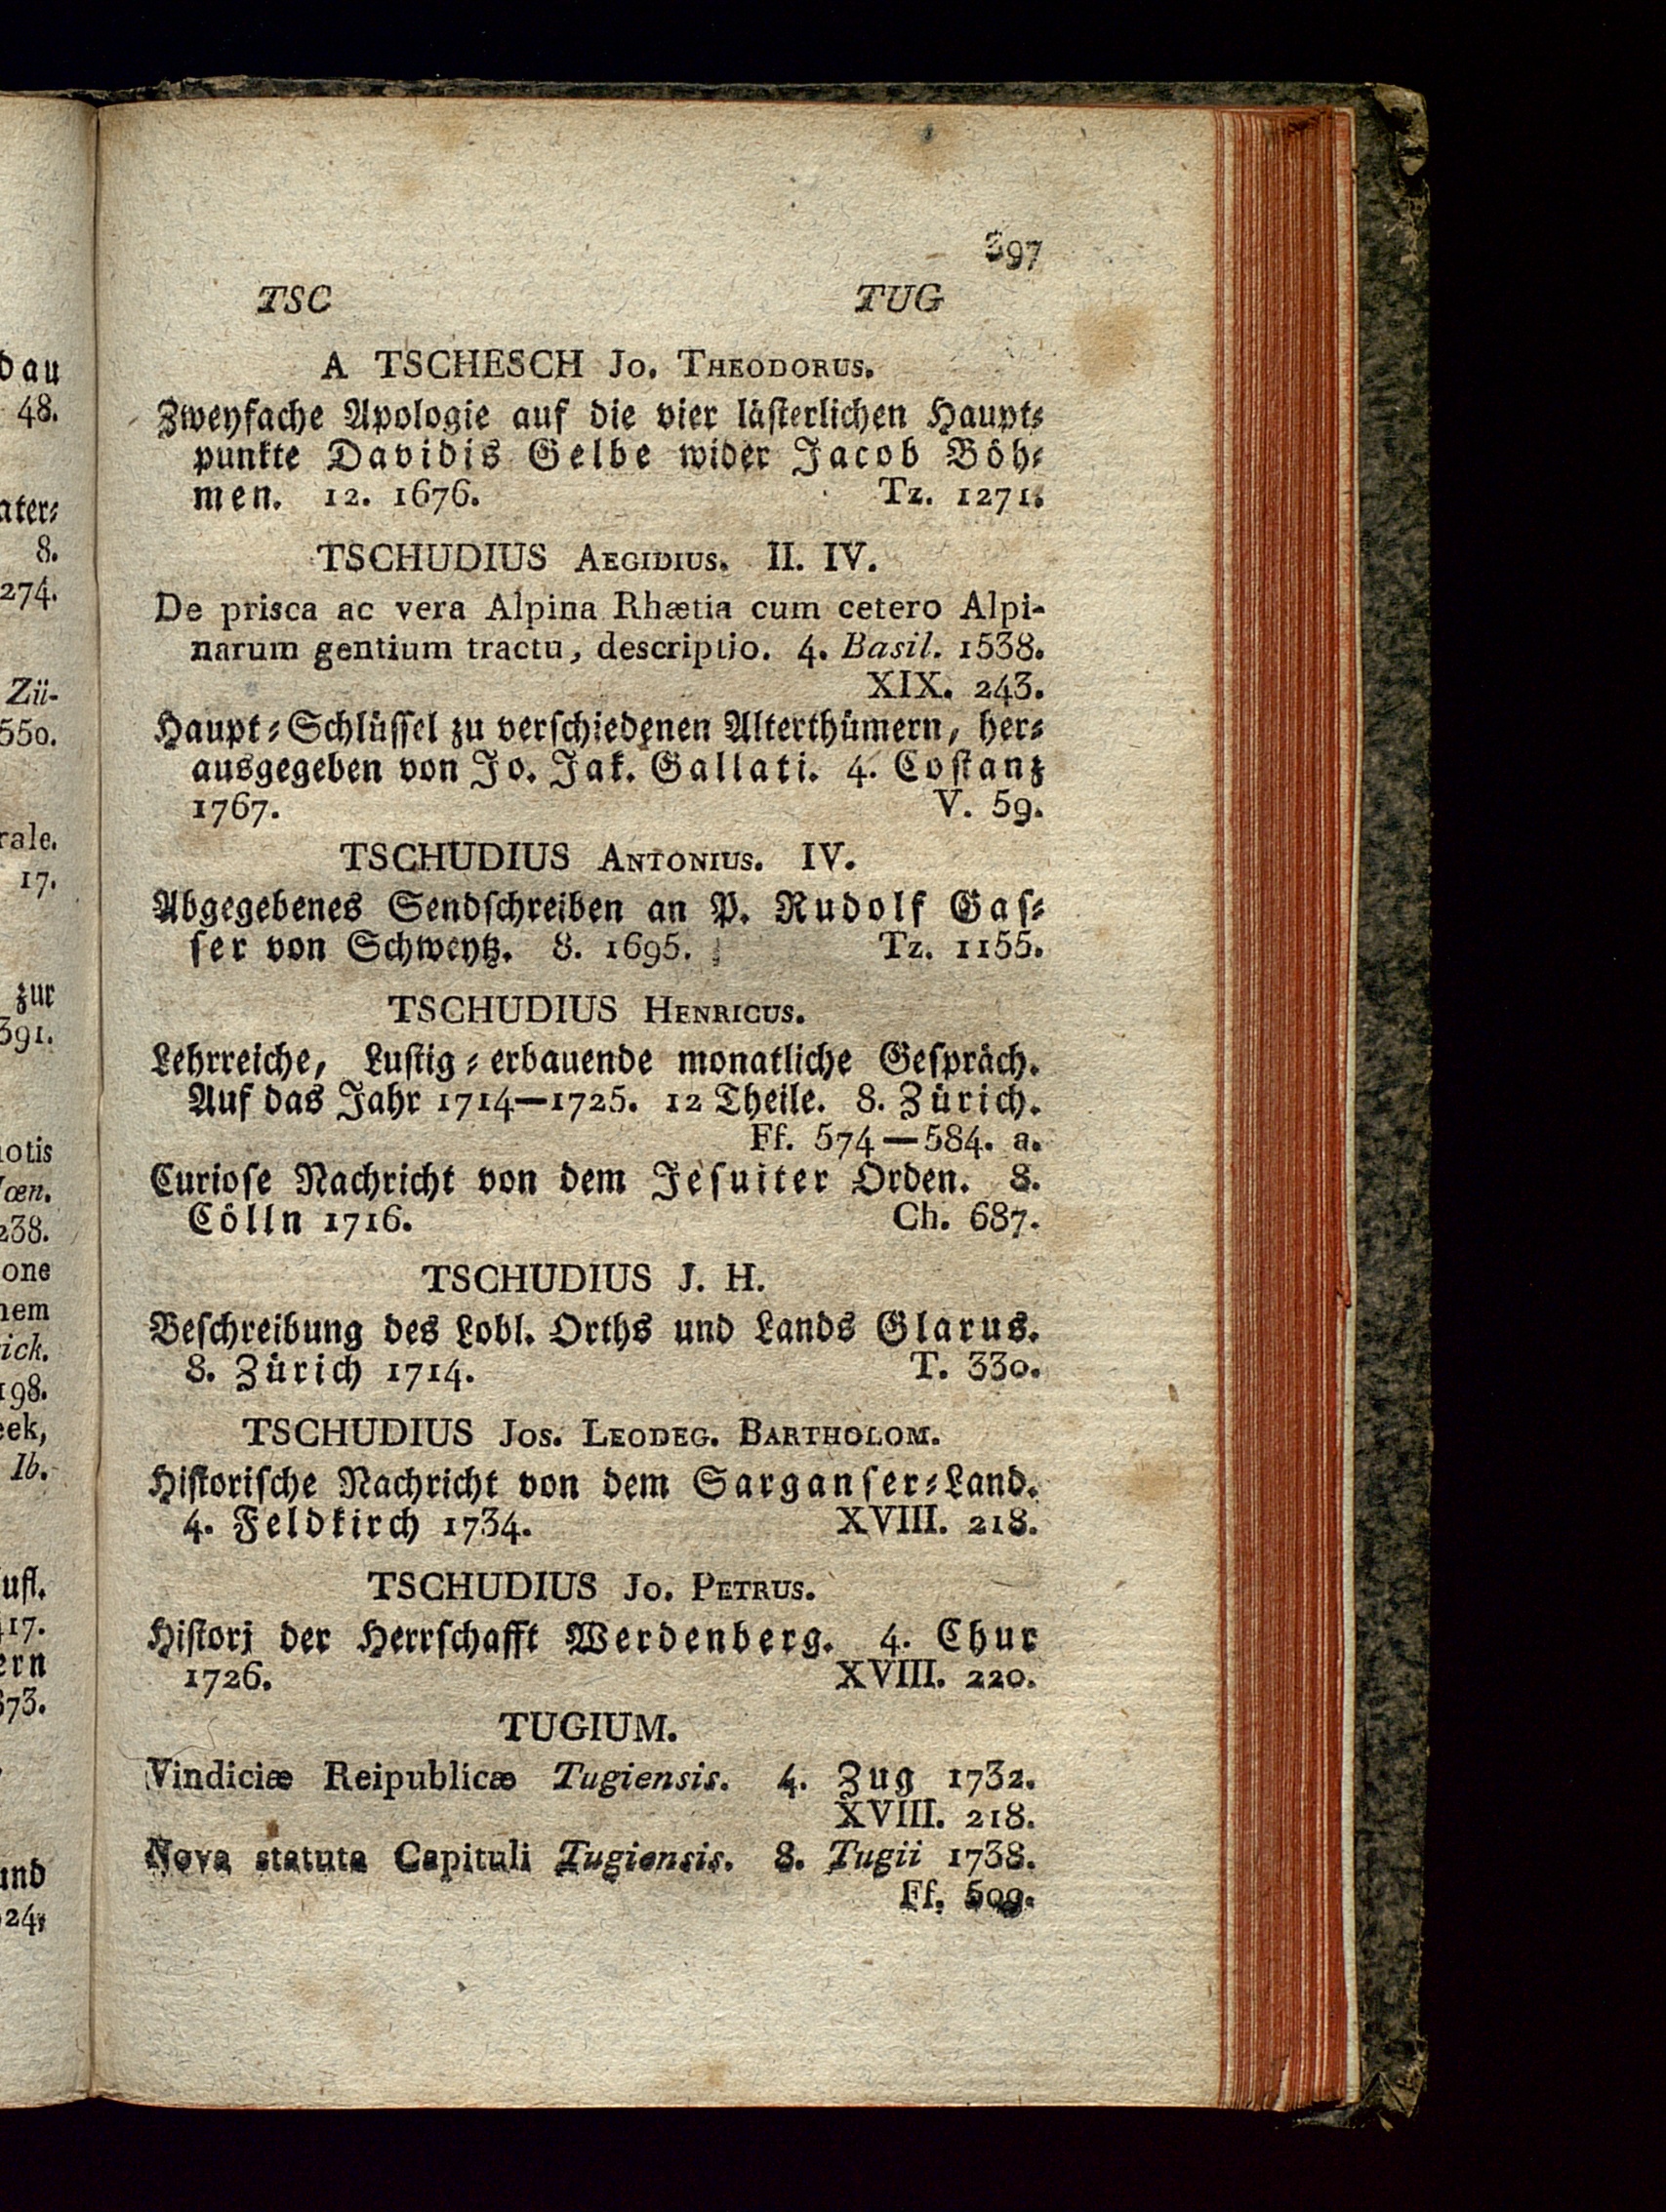 397
TSC TUG
A TSCHESCH Jo. Theodorus.
Zweyfache Apologie auf die vier lästerlichen Haupt-
punkte Davidis Gelbe wider Jacob Böh-
men. 12. 1676. Tz. 1271.
TSCHUDIUS Aegidius. II. IV.
De prisca ac vera Alpina Rhætia cum cetero Alpi-
narum gentium tractu, descriptio. 4. Basil. 1538.
XIX. 243.
Haupt-Schlüssel zu verschiedenen Alterthümern, her-
ausgegeben von Jo. Jak. Gallati. 4. Costanz
1767. V. 59.
TSCHUDIUS Antonius. IV.
Abgegebenes Sendschreiben an P. Rudolf Gas-
ser von Schweytz. 8. 1695. Tz. 1155.
TSCHUDIUS Henricus.
Lehrreiche, Lustig-erbauende monatliche Gespräch.
Auf das Jahr 1714—1725. 12 Theile. 8. Zürich.
Ff. 574—584. a.
Curiose Nachricht von dem Jesuiter Orden. 8.
Cölln 1716. Ch. 687.
TSCHUDIUS J. H.
Beschreibung des Lobl. Orths und Lands Glarus.
8. Zürich 1714. T. 330.
TSCHUDIUS Jos. Leodeg. Bartholom.
Historische Nachricht von dem Sarganser-Land.
4. Feldkirch 1734. XVIII. 218.
TSCHUDIUS Jo. Petrus.
Histori der Herrschafft Werdenberg. 4. Chur
1726. XVIII. 220.
TUGIUM.
Vindiciæ Reipublicæ Tugiensis. 4. Zug 1732.
XVIII. 218.
Nova statuta Capituli Tugiensis. 8. Tugii 1738.
Ff. 509.